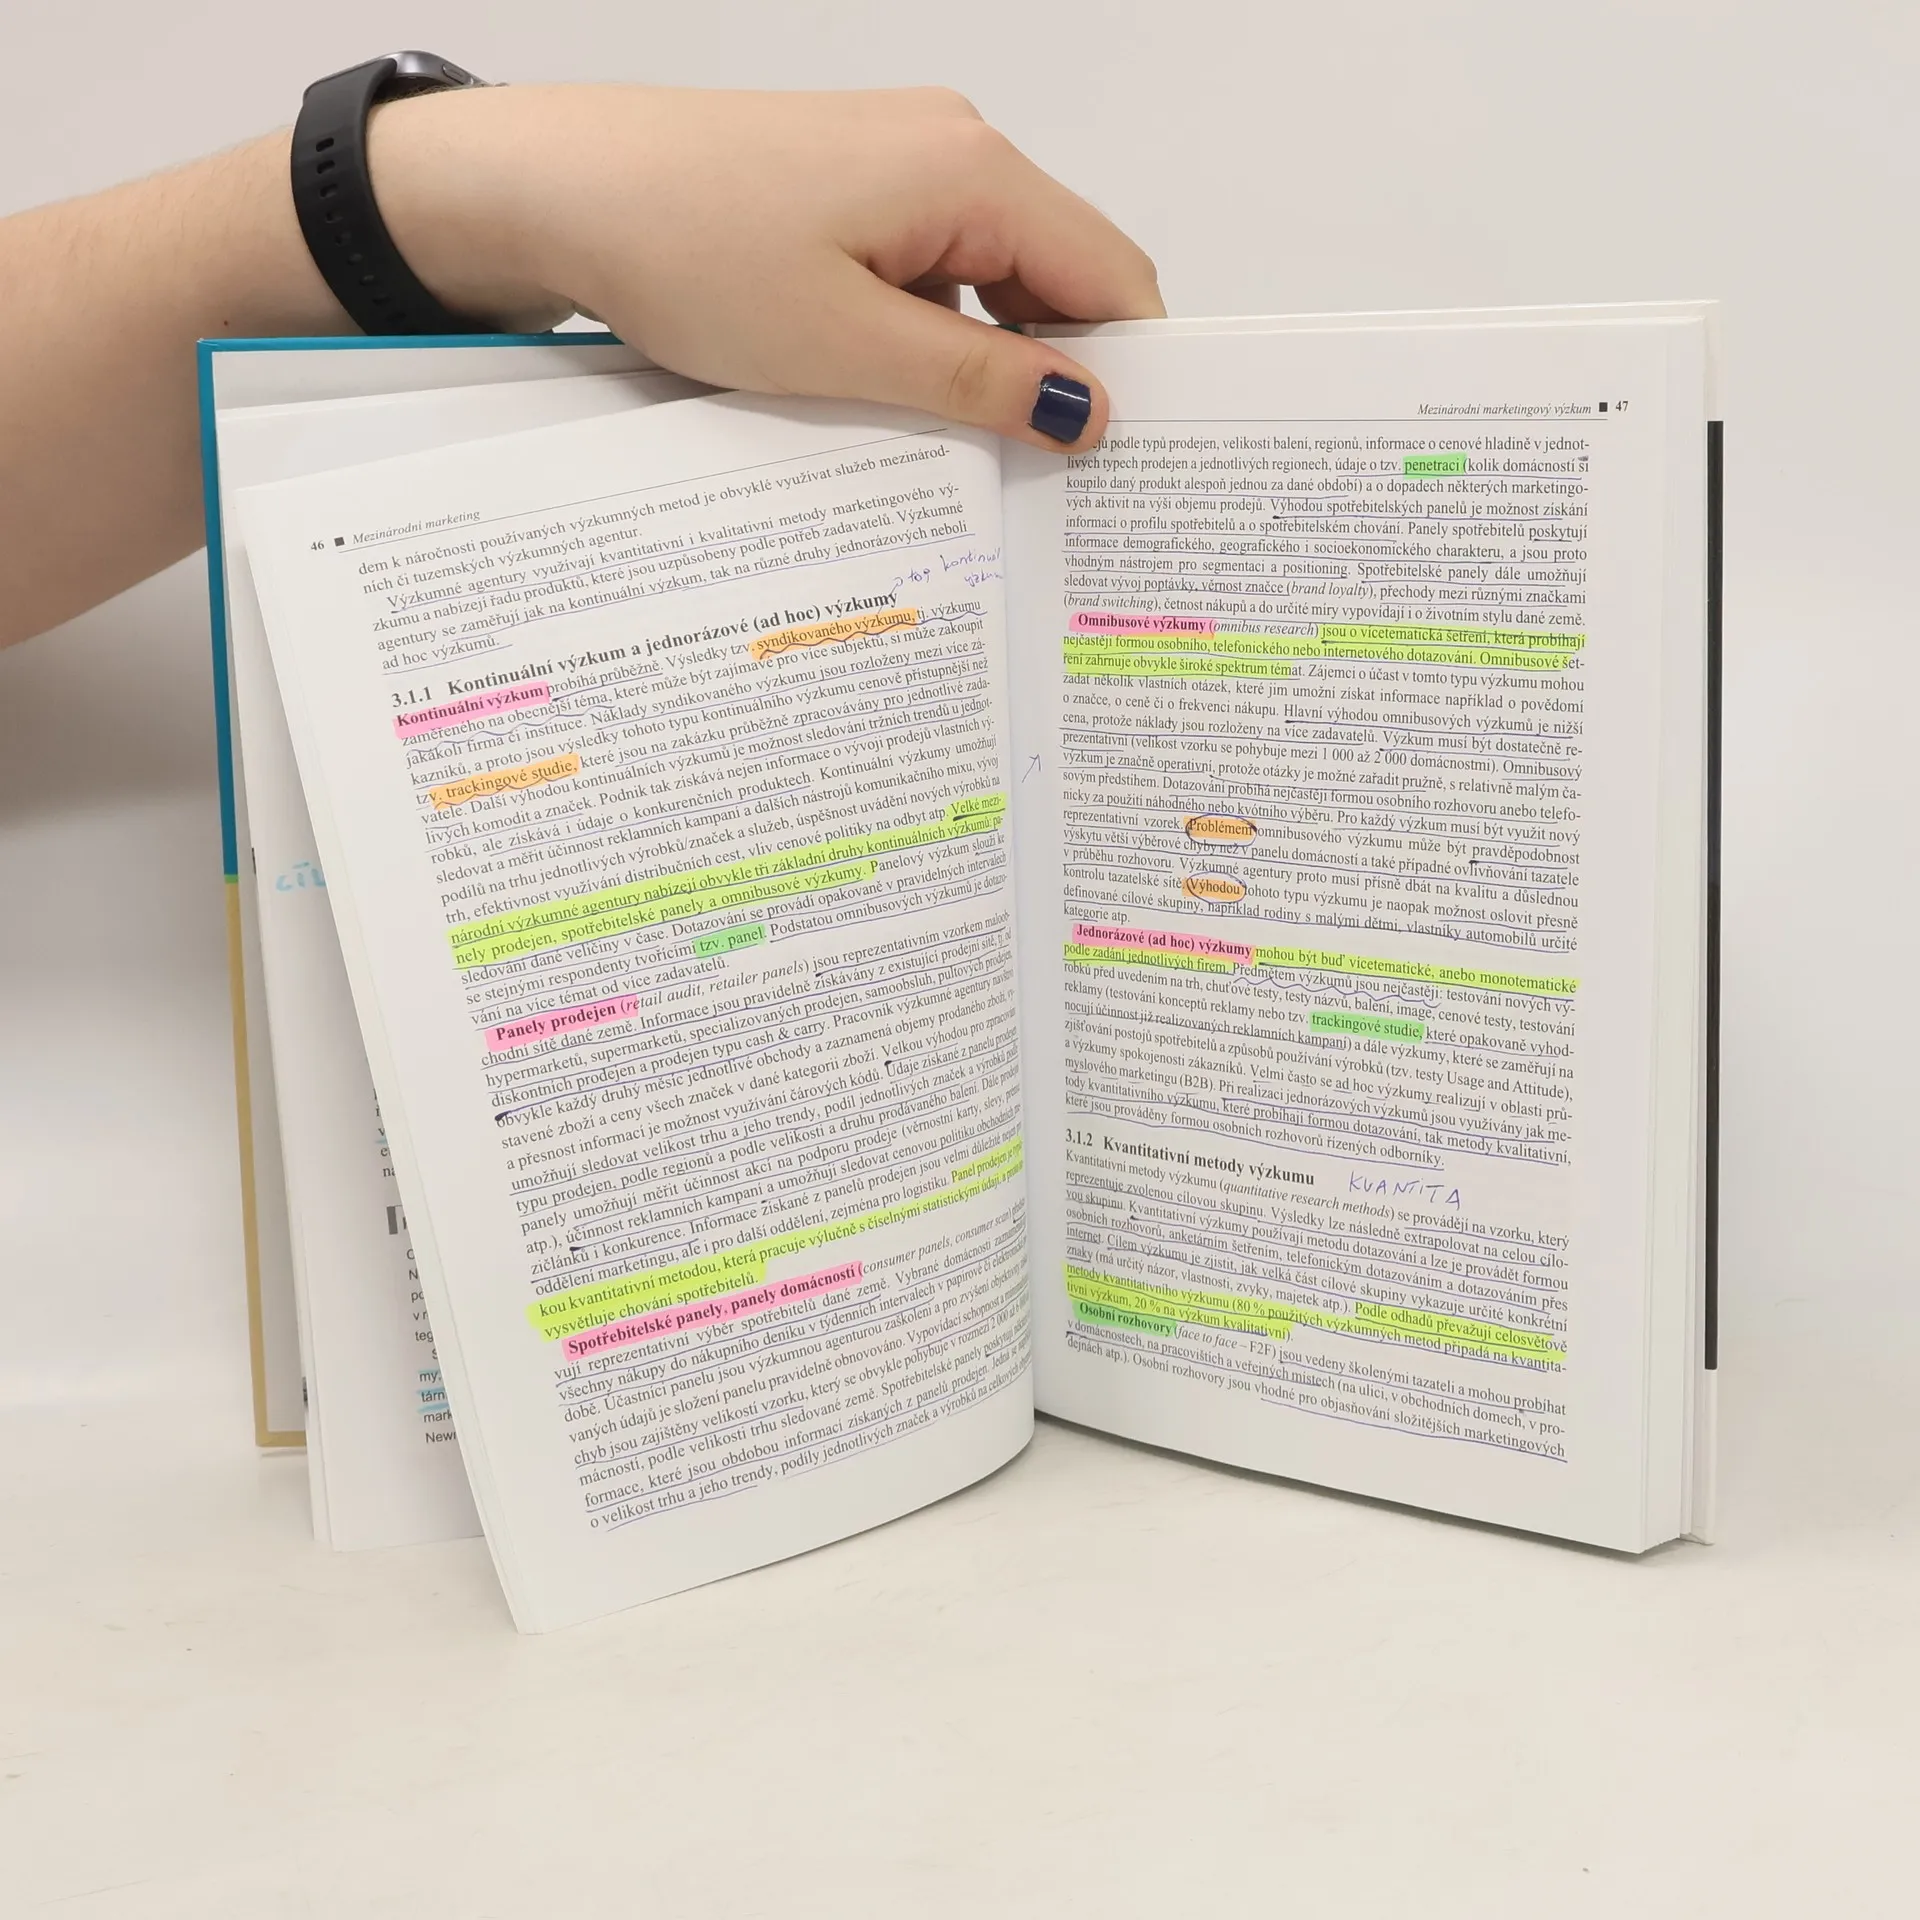 46 ■ Mezinárodní marketing
dem k náročnosti používaných výzkumných metod je obvyklé využívat služeb mezinárod-
ních či tuzemských výzkumných agentur.
Výzkumné agentury využívají kvantitativní i kvalitativní metody marketingového vý-
zkumu a nabízejí řadu produktů, které jsou uzpůsobeny podle potřeb zadavatelů. Výzkumné
agentury se zaměřují jak na kontinuální výzkum, tak na různé druhy jednorázových neboli
ad hoc výzkumů.
3.1.1 Kontinuální výzkum a jednorázové (ad hoc) výzkumy
Kontinuální výzkum probíhá průběžně. Výsledky tzv. syndikovaného výzkumu, tj. výzkumu
zaměřeného na obecnější téma, které může být zajímavé pro více subjektů, si může zakoupit
jakákoli firma či instituce. Náklady syndikovaného výzkumu jsou rozloženy mezi více zá-
kazníků, a proto jsou výsledky tohoto typu kontinuálního výzkumu cenově přístupnější než
tzv. trackingové studie, které jsou na zakázku průběžně zpracovávány pro jednotlivé zada-
vatele. Další výhodou kontinuálních výzkumů je možnost sledování tržních trendů u jednot-
livých komodit a značek. Podnik tak získává nejen informace o vývoji prodejů vlastních vý-
robků, ale získává i údaje o konkurenčních produktech. Kontinuální výzkumy umožňují
sledovat a měřit účinnost reklamních kampaní a dalších nástrojů komunikačního mixu, vývoj
podílů na trhu jednotlivých výrobků/značek a služeb, úspěšnost uvádění nových výrobků na
trh, efektivnost využívání distribučních cest, vliv cenové politiky na odbyt atp. Velké mezi-
národní výzkumné agentury nabízejí obvykle tři základní druhy kontinuálních výzkumů: pa-
nely prodejen, spotřebitelské panely a omnibusové výzkumy. Panelový výzkum slouží ke
sledování dané veličiny v čase. Dotazování se provádí opakovaně v pravidelných intervalech
se stejnými respondenty tvořícími tzv. panel. Podstatou omnibusových výzkumů je dotazo-
vání na více témat od více zadavatelů.
Panely prodejen (retail audit, retailer panels) jsou reprezentativním vzorkem maloob-
chodní sítě dané země. Informace jsou pravidelně získávány z existující prodejní sítě, tj. od
hypermarketů, supermarketů, specializovaných prodejen, samoobsluh, pultových prodejen,
diskontních prodejen a prodejen typu cash & carry. Pracovník výzkumné agentury navštíví
obvykle každý druhý měsíc jednotlivé obchody a zaznamená objemy prodaného zboží, vy-
stavené zboží a ceny všech značek v dané kategorii zboží. Velkou výhodou pro zpracování
a přesnost informací je možnost využívání čárových kódů. Údaje získané z panelu prodejen
umožňují sledovat velikost trhu a jeho trendy, podíl jednotlivých značek a výrobků podle
typu prodejen, podle regionů a podle velikosti a druhu prodávaného balení. Dále prodejní
panely umožňují měřit účinnost akcí na podporu prodeje (věrnostní karty, slevy,
atp.), účinnost reklamních kampaní a umožňují sledovat cenovou politiku obchodních
zičlánků i konkurence. Informace získané z panelů prodejen jsou velmi důležité nejen pro
oddělení marketingu, ale i pro další oddělení, zejména pro logistiku. Panel prodejen je
kou kvantitativní metodou, která pracuje výlučně s číselnými statistickými údaji, a proto
vysvětluje chování spotřebitelů.
Spotřebitelské panely, panely domácností (consumer panels, consumer scan)
vují reprezentativní výběr spotřebitelů dané země. Vybrané domácnosti zaznamenávají
všechny nákupy do nákupního deníku v týdenních intervalech v papírové či elektronické
době. Účastníci panelu jsou výzkumnou agenturou zaškoleni a pro zvýšení objektivity
vaných údajů je složení panelu pravidelně obnovováno. Vypovídací schopnost a
chyb jsou zajištěny velikostí vzorku, který se obvykle pohybuje v rozmezí 2 000 až
mácností, podle velikosti trhu sledované země. Spotřebitelské panely poskytují
formace, které jsou obdobou informací získaných z panelů prodejen. Jedná se
o velikost trhu a jeho trendy, podíly jednotlivých značek a výrobků na celkových
Mezinárodní marketingový výzkum ■ 47
jů podle typů prodejen, velikosti balení, regionů, informace o cenové hladině v jednot-
livých typech prodejen a jednotlivých regionech, údaje o tzv. penetraci (kolik domácností si
koupilo daný produkt alespoň jednou za dané období) a o dopadech některých marketingo-
vých aktivit na výši objemu prodejů. Výhodou spotřebitelských panelů je možnost získání
informací o profilu spotřebitelů a o spotřebitelském chování. Panely spotřebitelů poskytují
informace demografického, geografického i socioekonomického charakteru, a jsou proto
vhodným nástrojem pro segmentaci a positioning. Spotřebitelské panely dále umožňují
sledovat vývoj poptávky, věrnost značce (brand loyalty), přechody mezi různými značkami
(brand switching), četnost nákupů a do určité míry vypovídají i o životním stylu dané země.
Omnibusové výzkumy (omnibus research) jsou o vícetematická šetření, která probíhají
nejčastěji formou osobního, telefonického nebo internetového dotazování. Omnibusové šet-
ření zahrnuje obvykle široké spektrum témat. Zájemci o účast v tomto typu výzkumu mohou
zadat několik vlastních otázek, které jim umožní získat informace například o povědomí
o značce, o ceně či o frekvenci nákupu. Hlavní výhodou omnibusových výzkumů je nižší
cena, protože náklady jsou rozloženy na více zadavatelů. Výzkum musí být dostatečně re-
prezentativní (velikost vzorku se pohybuje mezi 1 000 až 2 000 domácnostmi). Omnibusový
výzkum je značně operativní, protože otázky je možné zařadit pružně, s relativně malým ča-
sovým předstihem. Dotazování probíhá nejčastěji formou osobního rozhovoru anebo telefo-
nicky za použití náhodného nebo kvótního výběru. Pro každý výzkum musí být využit nový
reprezentativní vzorek. Problémem omnibusového výzkumu může být pravděpodobnost
výskytu větší výběrové chyby než v panelu domácností a také případné ovlivňování tazatele
v průběhu rozhovoru. Výzkumné agentury proto musí přísně dbát na kvalitu a důslednou
kontrolu tazatelské sítě. Výhodou tohoto typu výzkumu je naopak možnost oslovit přesně
definované cílové skupiny, například rodiny s malými dětmi, vlastníky automobilů určité
kategorie atp.
Jednorázové (ad hoc) výzkumy mohou být buď vícetematické, anebo monotematické
podle zadání jednotlivých firem. Předmětem výzkumů jsou nejčastěji: testování nových vý-
robků před uvedením na trh, chuťové testy, testy názvů, balení, image, cenové testy, testování
reklamy (testování konceptů reklamy nebo tzv. trackingové studie, které opakovaně vyhod-
nocují účinnost již realizovaných reklamních kampaní) a dále výzkumy, které se zaměřují na
zjišťování postojů spotřebitelů a způsobů používání výrobků (tzv. testy Usage and Attitude),
a výzkumy spokojenosti zákazníků. Velmi často se ad hoc výzkumy realizují v oblasti prů-
myslového marketingu (B2B). Při realizaci jednorázových výzkumů jsou využívány jak me-
tody kvantitativního výzkumu, které probíhají formou dotazování, tak metody kvalitativní,
které jsou prováděny formou osobních rozhovorů řízených odborníky.
3.1.2 Kvantitativní metody výzkumu
KVANTITA
Kvantitativní metody výzkumu (quantitative research methods) se provádějí na vzorku, který
reprezentuje zvolenou cílovou skupinu. Výsledky lze následně extrapolovat na celou cílo-
vou skupinu. Kvantitativní výzkumy používají metodu dotazování a lze je provádět formou
osobních rozhovorů, anketárním šetřením, telefonickým dotazováním a dotazováním přes
internet. Cílem výzkumu je zjistit, jak velká část cílové skupiny vykazuje určité konkrétní
znaky (má určitý názor, vlastnosti, zvyky, majetek atp.). Podle odhadů převažují celosvětově
metody kvantitativního výzkumu (80 % použitých výzkumných metod připadá na kvantita-
tivní výzkum, 20 % na výzkum kvalitativní).
Osobní rozhovory (face to face – F2F) jsou vedeny školenými tazateli a mohou probíhat
v domácnostech, na pracovištích a veřejných místech (na ulici, v obchodních domech, v pro-
dejnách atp.). Osobní rozhovory jsou vhodné pro objasňování složitějších marketingových